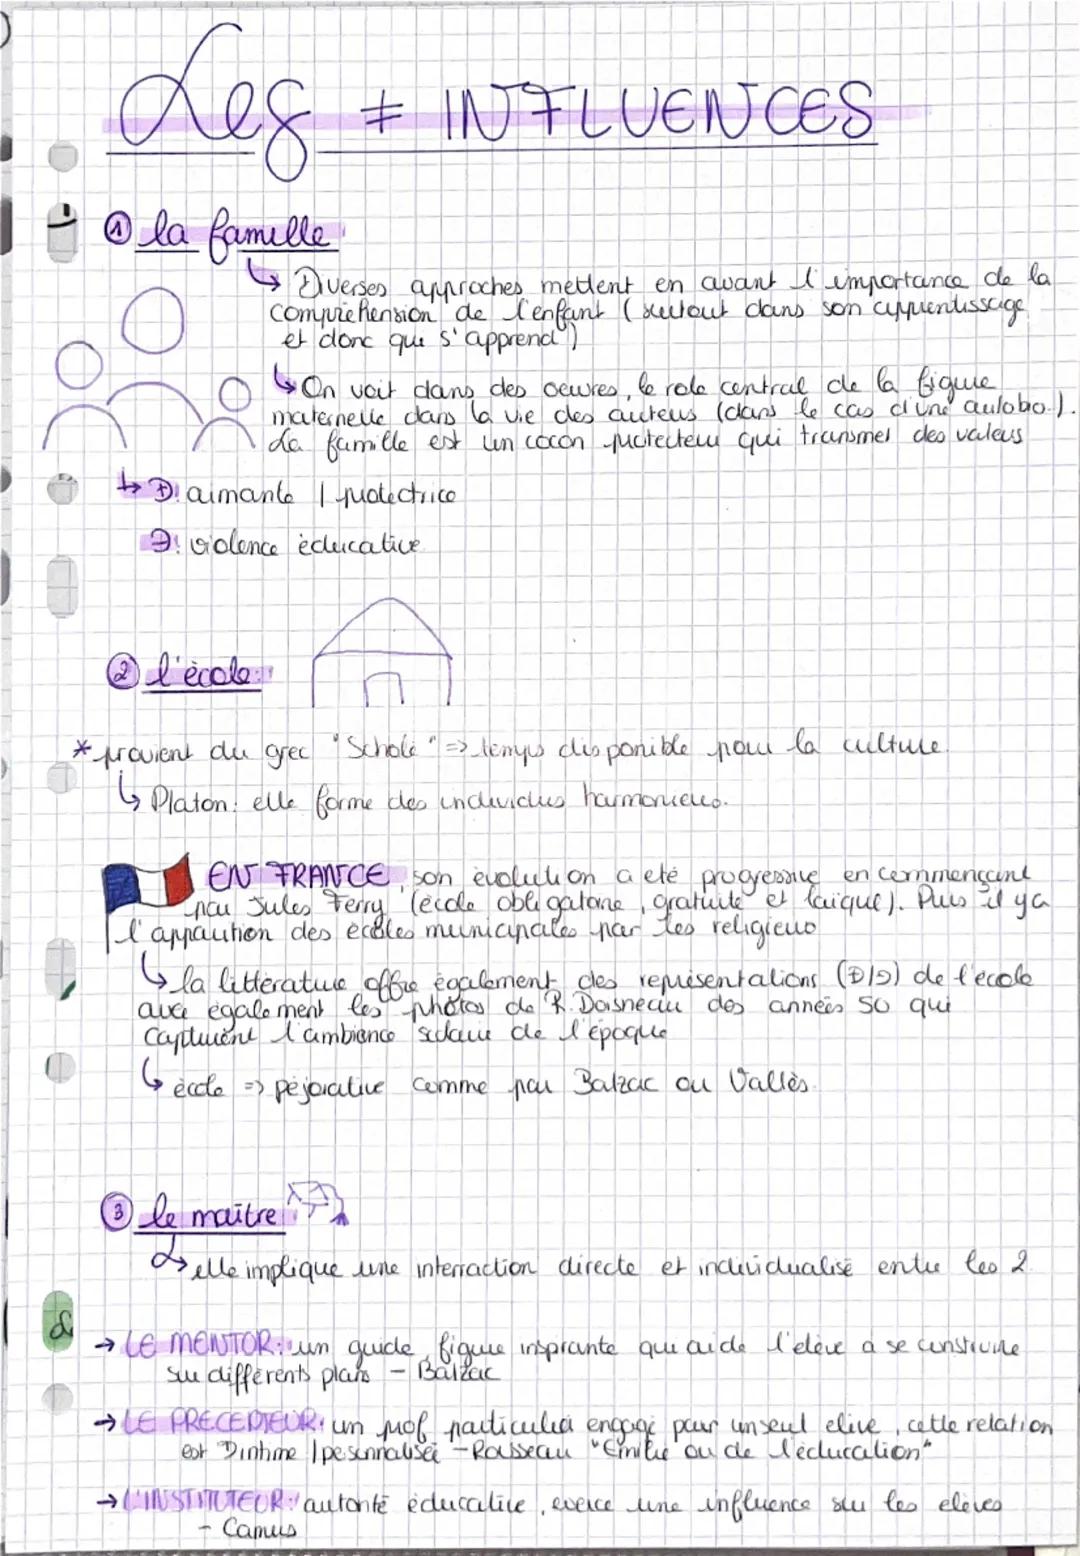 Les ≠ INFLUENCES
① la famille
↳ Diverses approches mettent en avant l'importance de la
compréhension de l'enfant (surtout dans son apprentissage
et donc que s'apprend")
↳ On voit dans des oeuvres, le role central de la figure
maternelle dans la vie des auteurs (dans le cas d'une autobio.).
La famille est un cocon protecteur qui transmet des valeurs
↳ ⊕: aimante / protectrice
⊖: violence éducative
② l'école:
* provient du grec "Scholé" => temps disponible pour la culture.
↳ Platon: elle forme des individus harmonieux.
EN FRANCE, son évolution a été progressive en commençant
par Jules Ferry (école obligatoire, gratuite et laïque). Puis il y a
l'apparition des écoles municipales par les religieux
↳ la littérature offre également des représentations (⊕/⊖) de l'école
avec également les photos de R. Doisneau des années 50 qui
capturent l'ambiance scolaire de l'époque
↳ école => péjorative comme par Balzac ou Vallès.
③ le maître
↳ elle implique une interraction directe et individualisé entre les 2.
→ LE MENTOR: un guide, figure inspirante qui aide l'élève a se construire
sur différents plans - Balzac
→ LE PRECEPTEUR: un prof particulier engagé pour un seul élève, cette relation
est intime / personnalisée - Rousseau "Emilie ou de l'éducation"
→ L'INSTITUTEUR: autorité éducative, exerce une influence sur les élèves
- Camus